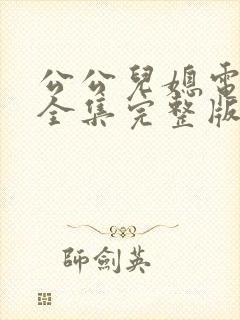 公公兒媳電
全集完整版
師劍英